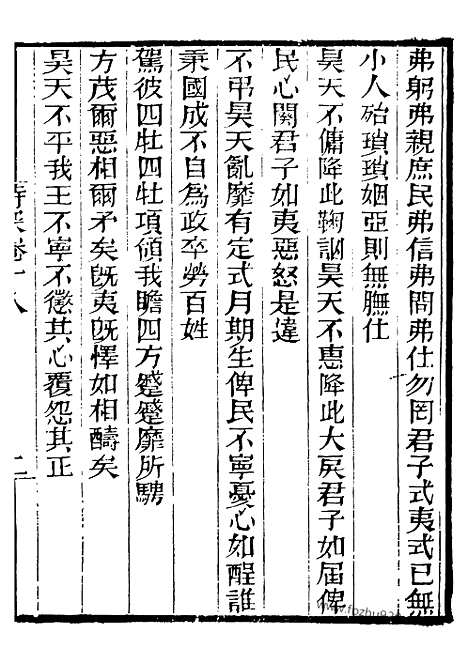 弗躬弗親庶民弗信弗問弗仕勿罔君子式夷式已無
小人殆瑣瑣姻亞則無膴仕
昊天不傭降此鞠訩昊天不惠降此大戾君子如届俾
民心闋君子如夷惡怒是違
不弔昊天亂靡有定式月斯生俾民不寧憂心如酲誰
秉國成不自為政卒勞百姓
駕彼四牡四牡項領我瞻四方蹙蹙靡所騁
方茂爾惡相爾矛矣旣夷旣懌如相醻矣
昊天不平我王不寧不懲其心覆怨其正
卷十八
二